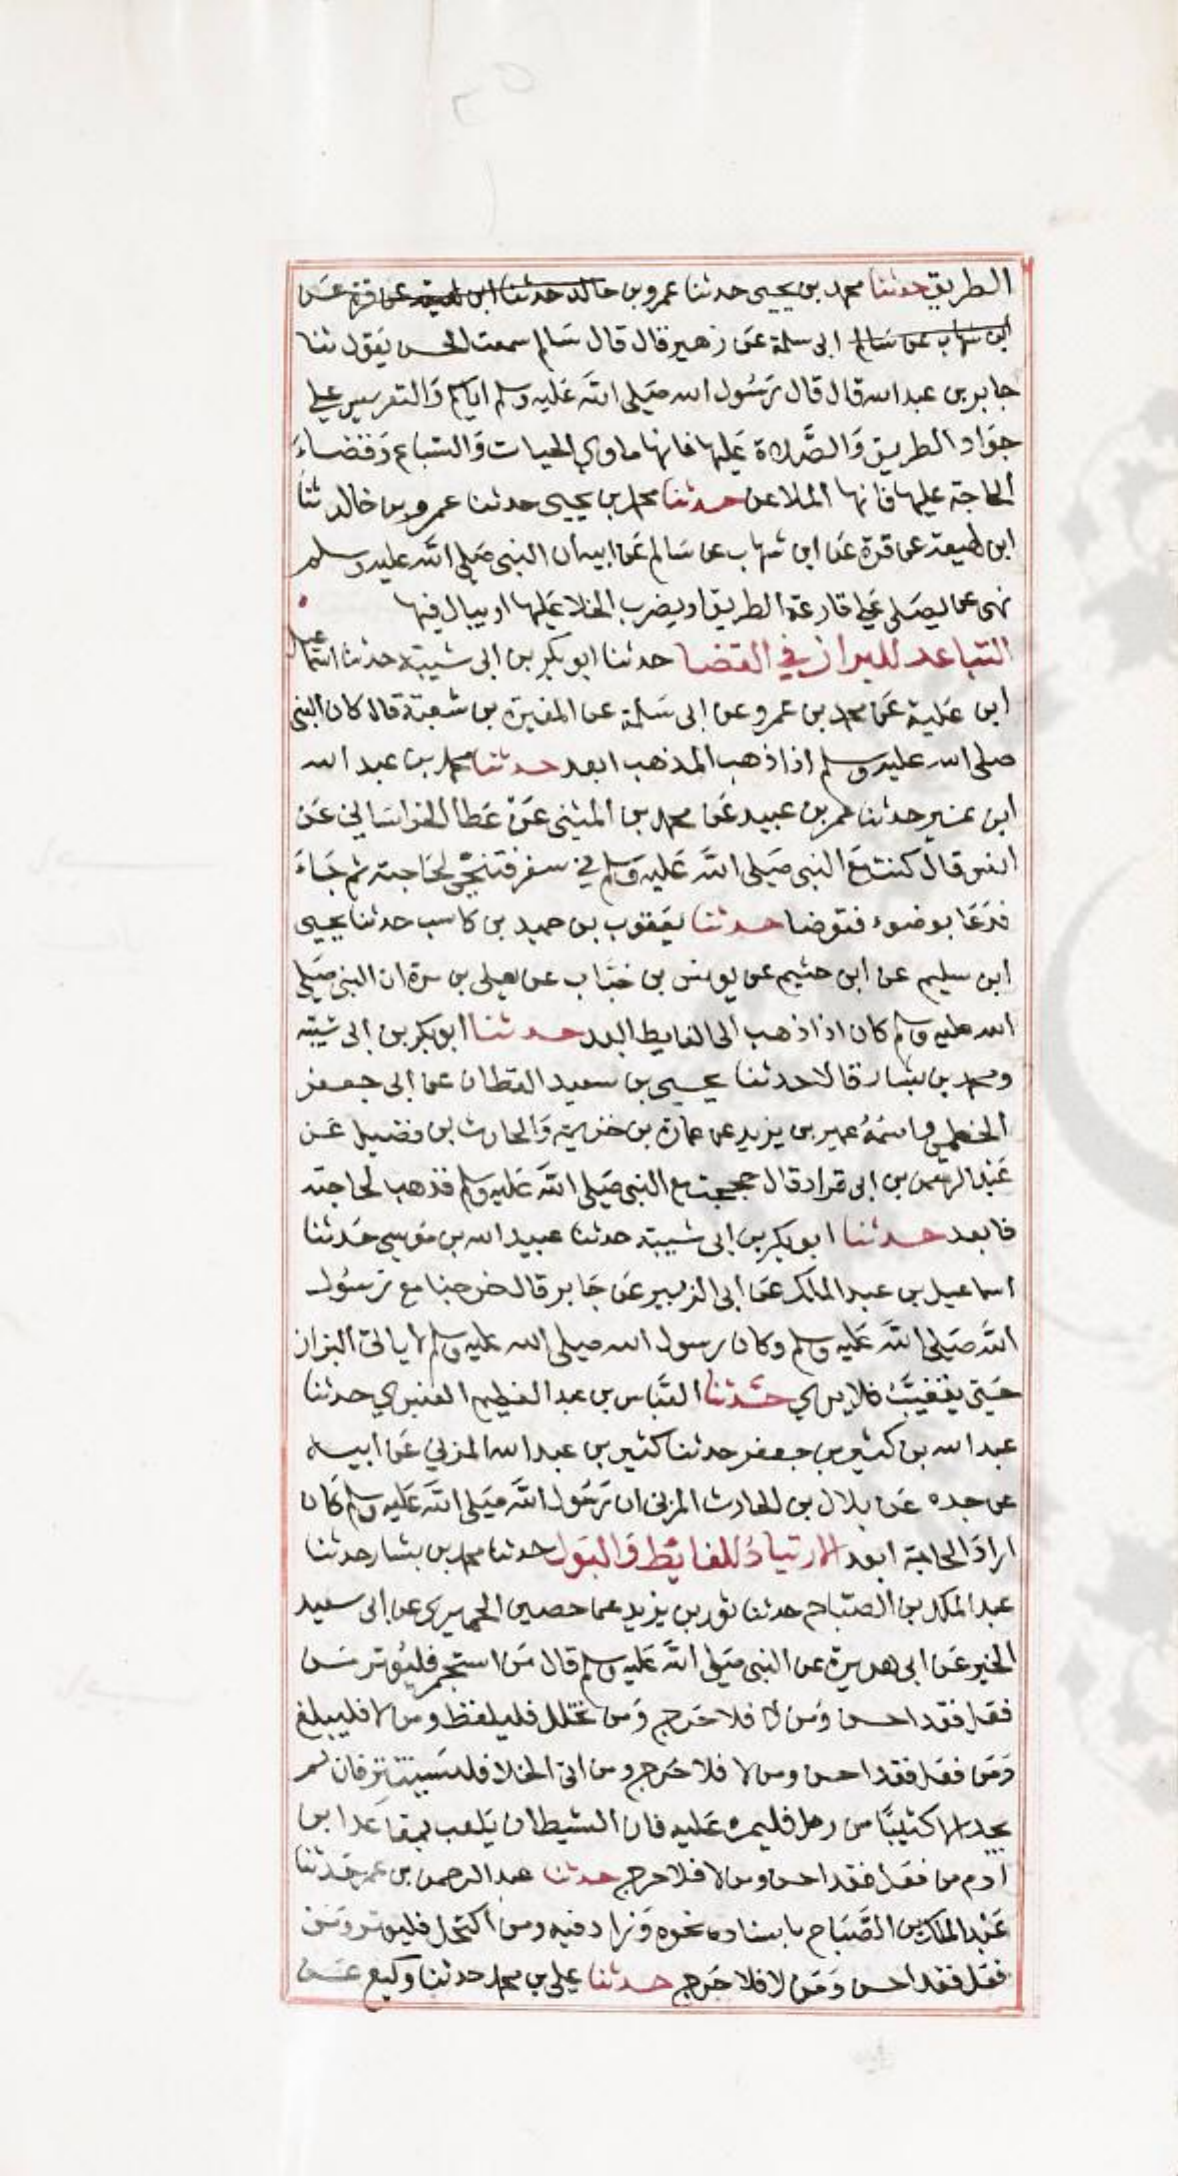 الطريق حدثنا محمد بن يحيى حدثنا عمرو بن خالد حدثنا ابن لهيعة عن قرة عن
ابن شهاب عن سالم ابى سلمة عن زهير قال قال سالم سمعت الحسن يقول ثنا
جابر بن عبد الله قال قال رسول الله صلى الله عليه وسلم اياكم والتعريس على
جواد الطريق والصلاة عليها فانها ماوي الحيات والسباع وقضاء
الحاجة عليها فانها الملاعن حدثنا محمد بن يحيى حدثنا عمرو بن خالد ثنا
ابن لهيعة عن قرة عن ابن شهاب عن سالم عن ابيه ان النبى صلى الله عليه وسلم
نهى عن يصلى على قارعة الطريق او يضرب الخلا عليها او يبال فيها
التباعد للبراز في الفضا حدثنا ابو بكر بن ابى شيبة حدثنا اسماعيل
ابن علية عن محمد بن عمرو عن ابى سلمة عن المغيرة بن شعبة قال كان النبى
صلى الله عليه وسلم اذا ذهب المذهب ابعد حدثنا محمد بن عبد الله
ابن نمير حدثنا عمر بن عبيد عن محمد بن المثنى عن عطا الخراساني عن
انس قال كنت مع النبى صلى الله عليه وسلم في سفر فتنحى لحاجته ثم جاء
فدعا بوضوء فتوضا حدثنا يعقوب بن حميد بن كاسب حدثنا يحيى
ابن سليم عن ابن خثيم عن يونس بن خباب عن يعلى بن مرة ان النبى صلى
الله عليه وسلم كان اذا ذهب الى الغايط ابعد حدثنا ابو بكر بن ابى شيبة
ومحمد بن بشار قالا حدثنا يحيى بن سعيد القطان عن ابى جعفر
الخطمي واسمه عمير بن يزيد عن عمارة بن خزيمة والحارث بن فضيل عن
عبد الرحمن بن ابى قراد قال حججت مع النبى صلى الله عليه وسلم فذهب لحاجته
فابعد حدثنا ابو بكر بن ابى شيبة حدثنا عبيد الله بن موسى حدثنا
اسماعيل بن عبد الملك عن ابى الزبير عن جابر قال خرجنا مع رسول
الله صلى الله عليه وسلم وكان رسول الله صلى الله عليه وسلم لا ياتى البراز
حتى يتغيب فلا يرى حدثنا العباس بن عبد العظيم العنبري حدثنا
عبد الله بن كثير بن جعفر حدثنا كثير بن عبد الله المزني عن ابيه
عن جده عن بلال بن الحارث المزنى ان رسول الله صلى الله عليه وسلم كان
اراد الحاجة ابعد الارتياد للغائط والبول حدثنا محمد بن بشار حدثنا
عبد الملك بن الصباح حدثنا ثور بن يزيد عن حصين الحميري عن ابى سعيد
الخير عن ابى هريرة عن النبى صلى الله عليه وسلم قال من استجمر فليوتر من
فعل فقد احسن ومن لا فلا حرج ومن تخلل فليلفظ ومن لا فليبلغ
ومن فعل فقد احسن ومن لا فلا حرج ومن اتى الخلا فليستتر فان لم
يجد الا كثيبا من رمل فليمره عليه فان الشيطان يلعب بمقاعد ابن
ادم من فعل فقد احسن ومن لا فلا حرج حدثنا عبد الرحمن بن عمر حدثنا
عبد الملك بن الصباح باسناده نحوه وزاد فيه ومن اكتحل فليوتر ومن
فعل فقد احسن ومن لا فلا حرج حدثنا على بن محمد حدثنا وكيع عن